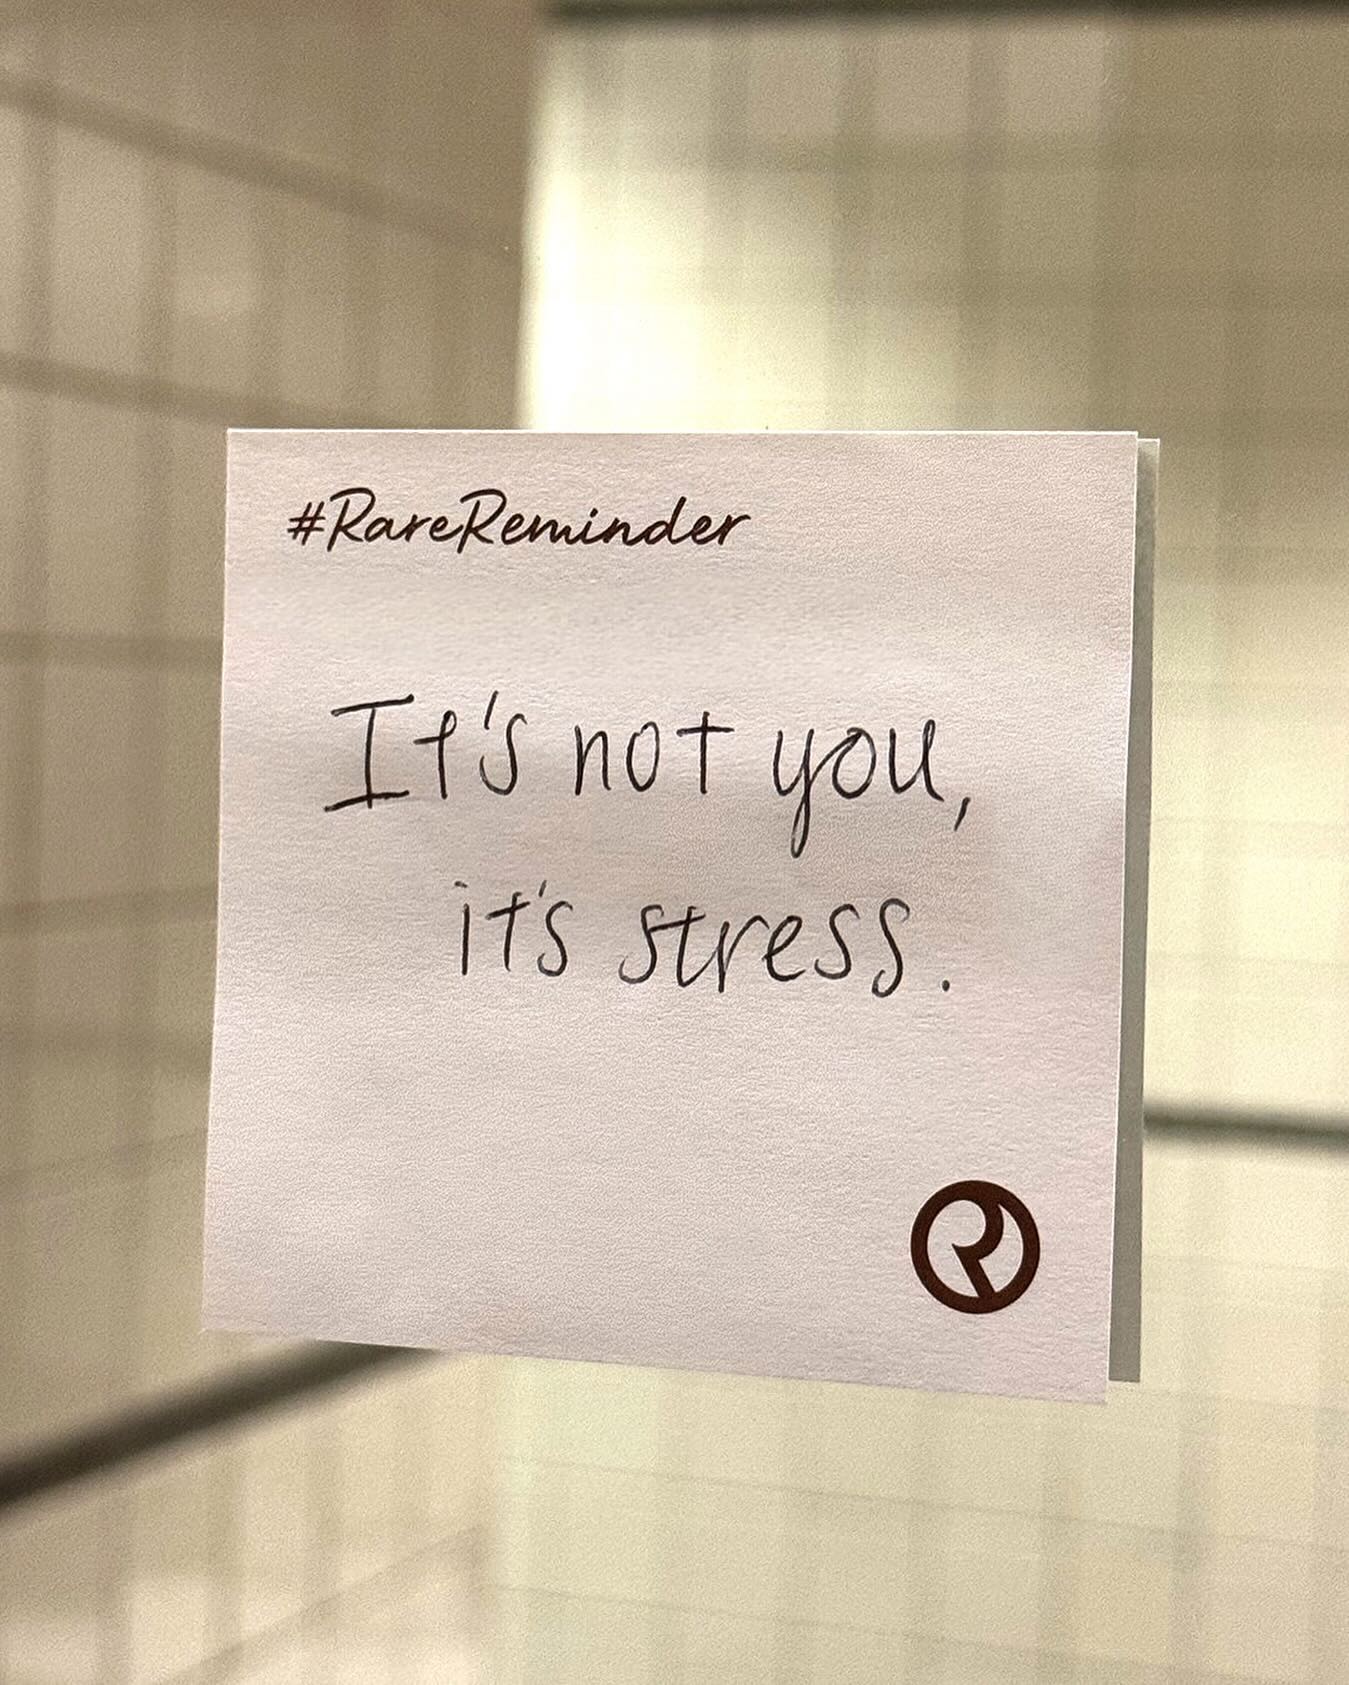 #RareReminder
It's not you,
it's stress.
R